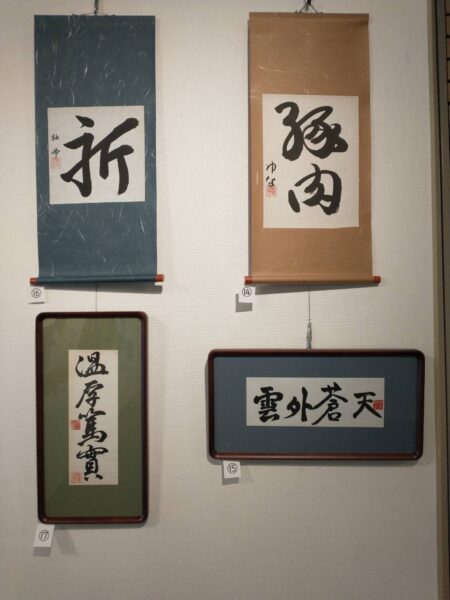 祈
⑯
豚肉
ゆな
⑭
温厚篤實
⑰
雲外蒼天
⑮